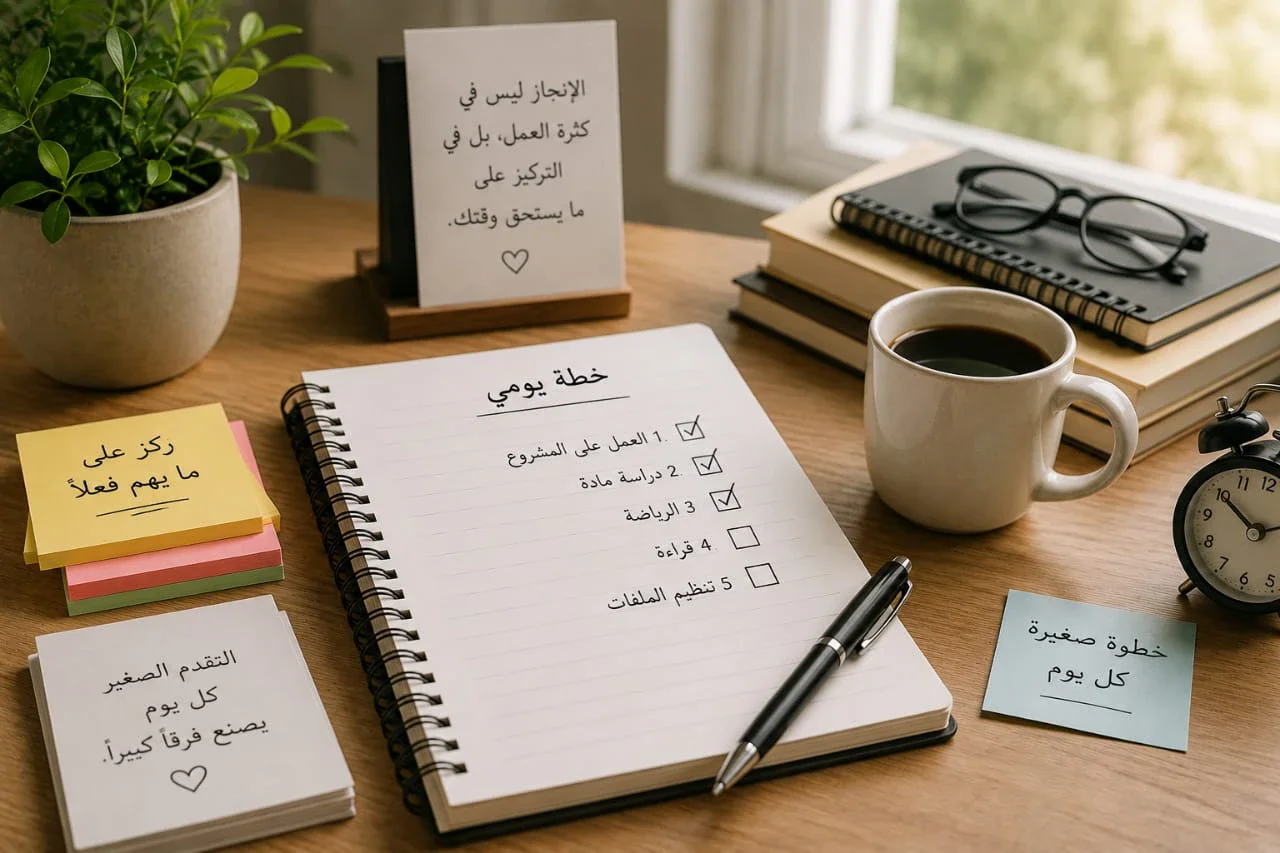 الإنجاز ليس في
كثرة العمل، بل في
التركيز على
ما يستحق وقتك.
خطة يومي
1. العمل على المشروع
2. دراسة مادة
3 الرياضة
4. قراءة
5 تنظيم الملفات
ركز على
ما يهم فعلاً
التقدم الصغير
كل يوم
يصنع فرقاً كبيراً.
خطوة صغيرة
كل يوم
11
12
10
9
8
7
6
5